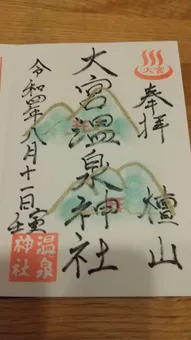 大宮
奉拝 檀山
大宮温泉神社
令和四年八月十一日 壬寅
温泉
神社